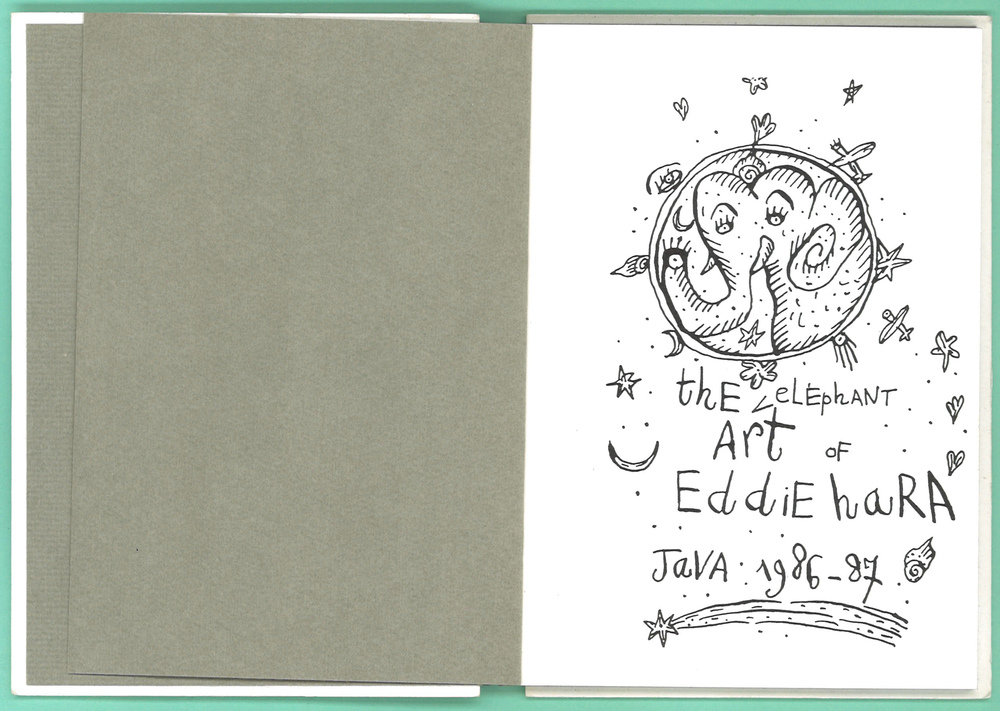 thE eLEphANT
Art oF
EddiE haRA
JaVA · 1986-87